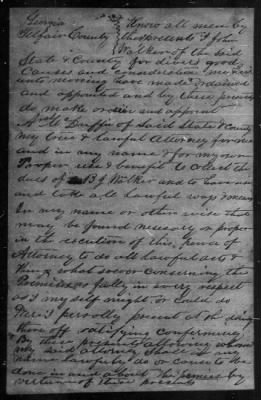 Georgia Know all men by
Telfair County these presents I John
Walker of the Said
State & County for divers good
Causes and consideration me
unto moving have made ordained
and appointed and by these presents
do make ordain and appoint
A Griffin of Said State & County
my true & lawful Attorney for me
and in my name & for my own
Proper use & benefit to Collect the
dues of B J Walker and to have use
and take all lawful ways & means
In my name or other wise that
may be found necessary or proper
in the execution of this Power of
Attorney to do all lawful acts &
things what soever concerning the
Premises as fully in every respect
as I my self might or could do
were I personally present at the doing
there off ratifying confirming
By these presents allowing whom
my said attorney Shall in my
name lawfully do or cause to be
done in and about the premises by
virtue of these presents